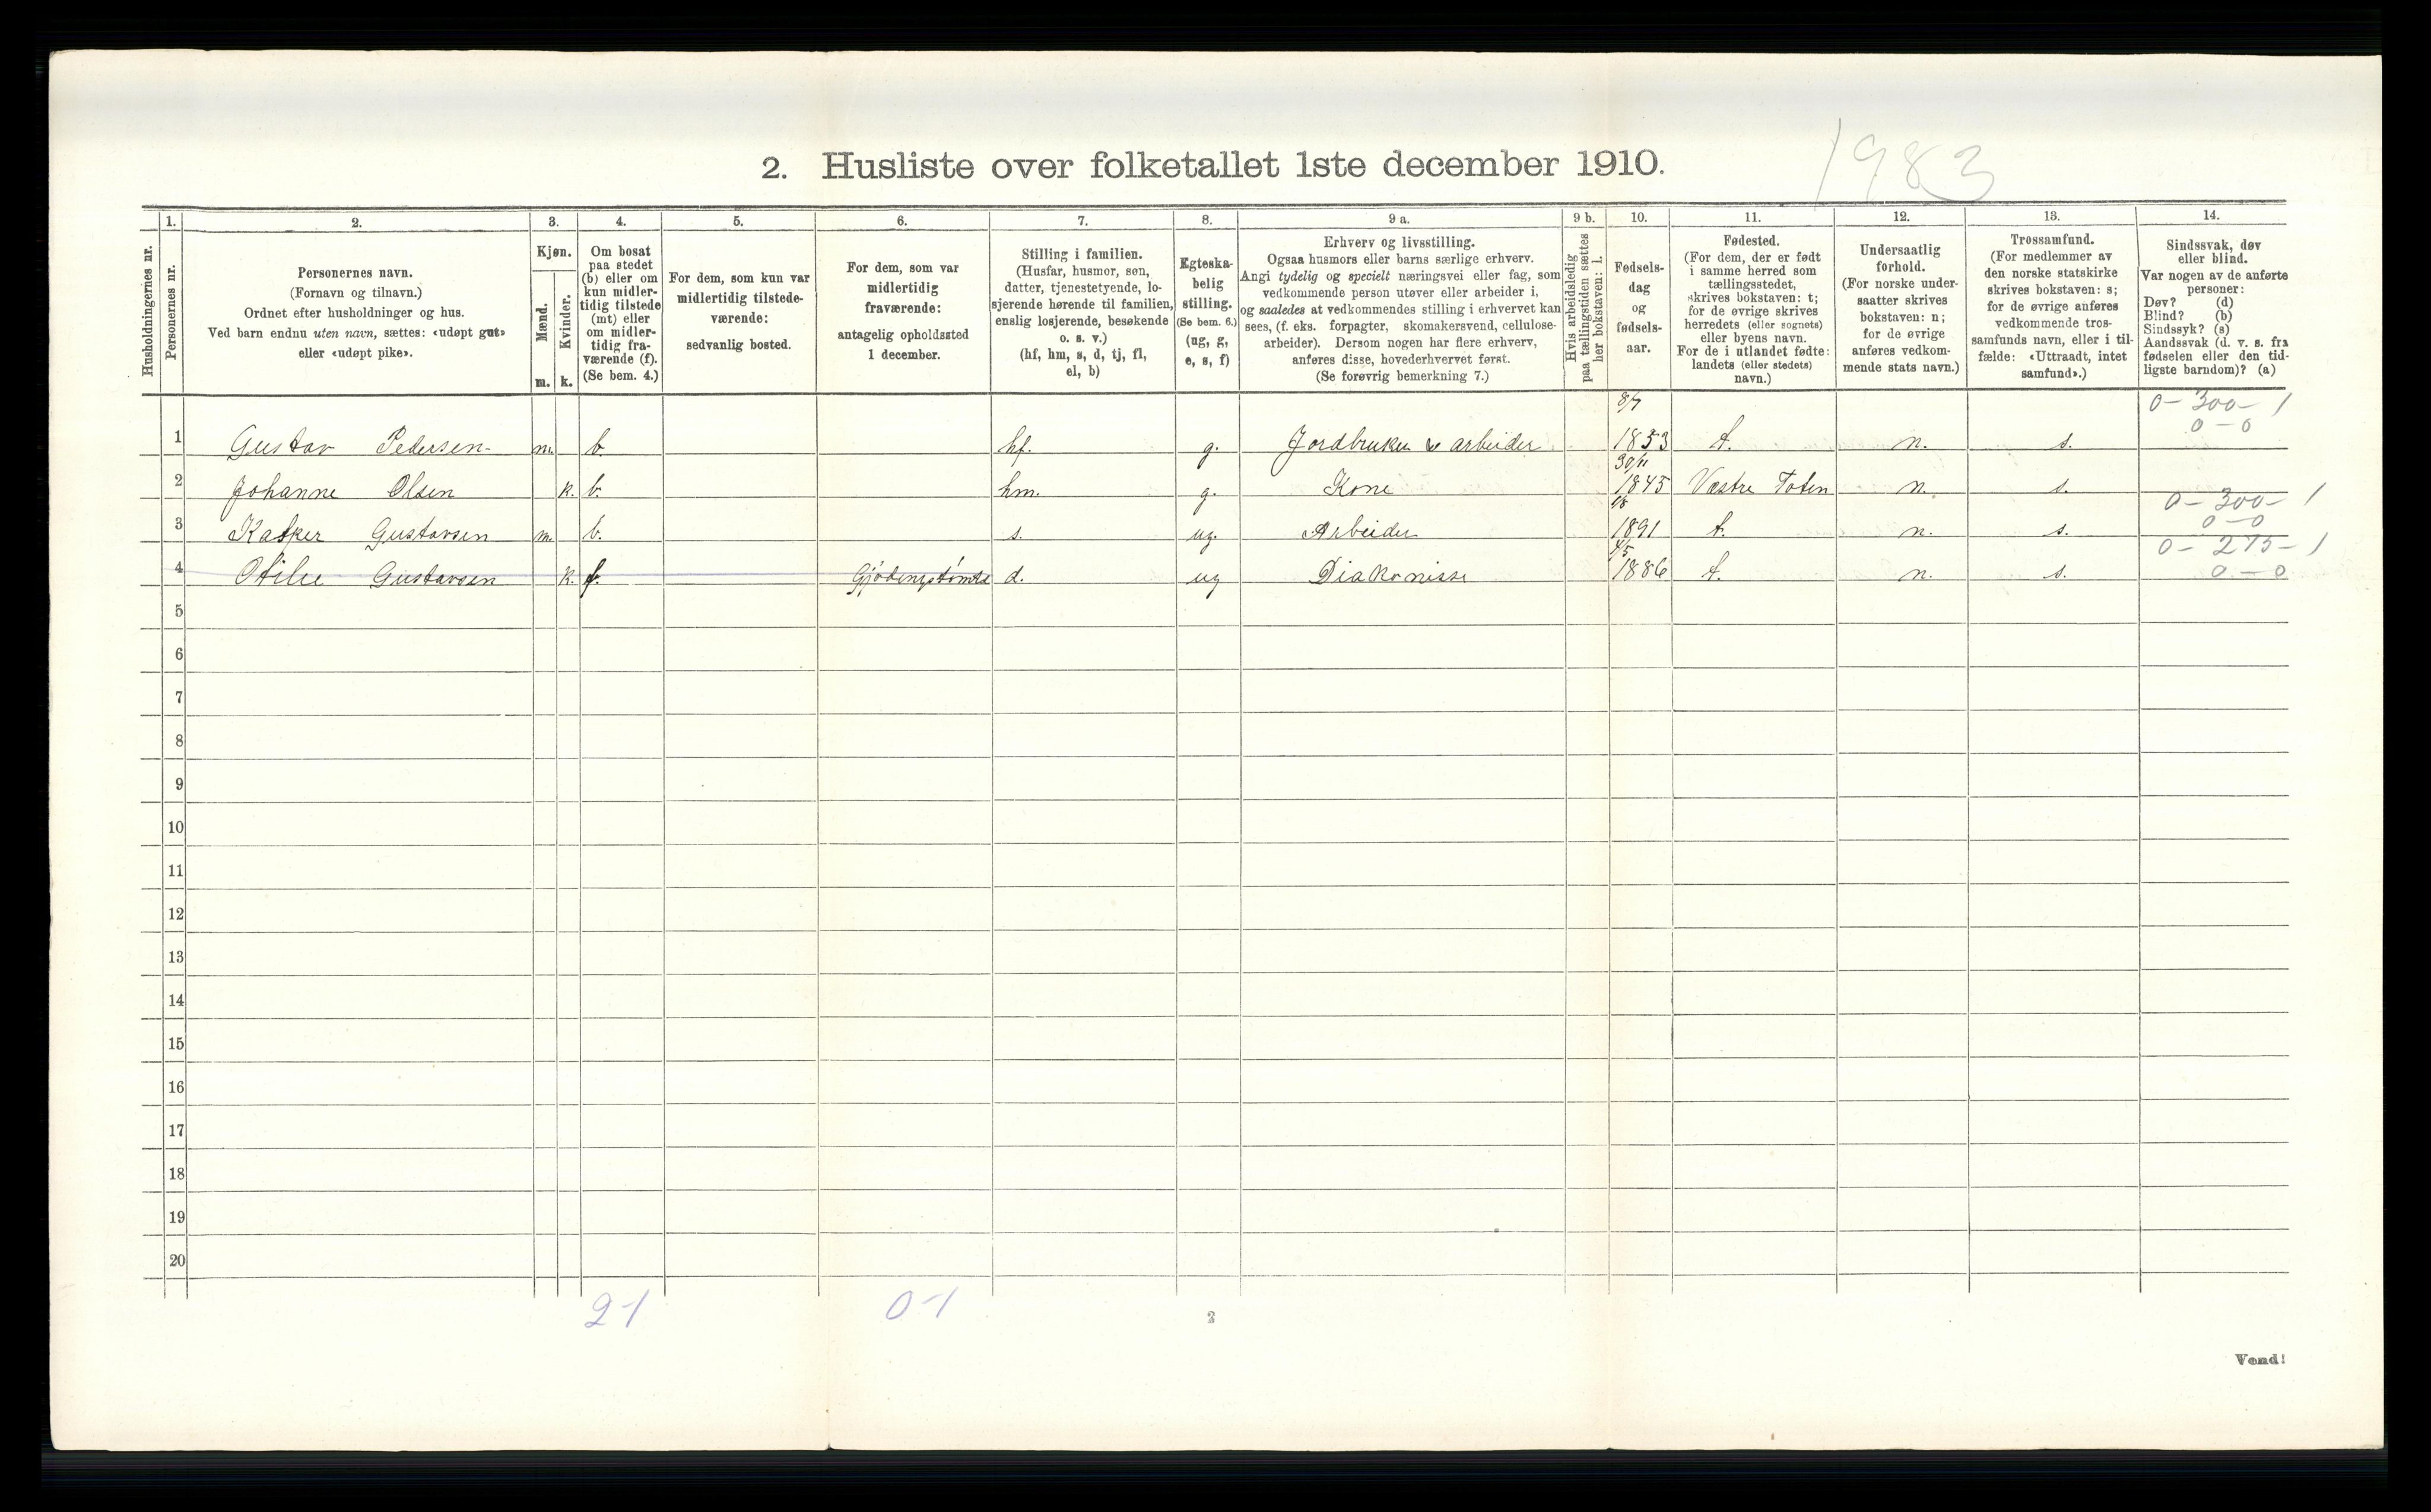 1983
2. Husliste over folketallet 1ste december 1910.
1. 2. 3. 4. 5. 6. 7. 8. 9 a. 9 b. 10. 11. 12. 13. 14.
Husholdningernes nr.
Personernes nr.
Personernes navn.
(Fornavn og tilnavn.)
Ordnet efter husholdninger og hus.
Ved barn endnu uten navn, sættes: «udøpt gut»
eller «udøpt pike».
Kjøn.
Mænd.
Kvinder.
m. k.
Om bosat
paa stedet
(b) eller om
kun midler-
tidig tilstede
(mt) eller
om midler-
tidig fra-
værende (f).
(Se bem. 4.)
For dem, som kun var
midlertidig tilstede-
værende:
sedvanlig bosted.
For dem, som var
midlertidig
fraværende:
antagelig opholdssted
1 december.
Stilling i familien.
(Husfar, husmor, søn,
datter, tjenestetyende, lo-
sjerende hørende til familien,
enslig losjerende, besøkende
o. s. v.)
(hf, hm, s, d, tj, fl,
el, b)
Egteska-
belig
stilling.
(Se bem. 6.)
(ug, g,
e, s, f)
Erhverv og livsstilling.
Ogsaa husmors eller barns særlige erhverv.
Angi tydelig og specielt næringsvei eller fag, som
vedkommende person utøver eller arbeider i,
og saaledes at vedkommendes stilling i erhvervet kan
sees, (f. eks. forpagter, skomakersvend, cellulose-
arbeider). Dersom nogen har flere erhverv,
anføres disse, hovederhvervet først.
(Se forøvrig bemerkning 7.)
Hvis arbeidsledig
paa tællingstiden sættes
her bokstaven: l.
Fødsels-
dag
og
fødsels-
aar.
Fødested.
(For dem, der er født
i samme herred som
tællingsstedet,
skrives bokstaven: t;
for de øvrige skrives
herredets (eller sognets)
eller byens navn.
For de i utlandet fødte:
landets (eller stedets)
navn.)
Undersaatlig
forhold.
(For norske under-
saatter skrives
bokstaven: n;
for de øvrige
anføres vedkom-
mende stats navn.)
Trossamfund.
(For medlemmer av
den norske statskirke
skrives bokstaven: s;
for de øvrige anføres
vedkommende tros-
samfunds navn, eller i til-
fælde: «Uttraadt, intet
samfund».)
Sindssvak, døv
eller blind.
Var nogen av de anførte
personer:
Døv? (d)
Blind? (b)
Sindssyk? (s)
Aandssvak (d. v. s. fra
fødselen eller den tid-
ligste barndom)? (a)
8/7 0-300-1
1 Gustav Pedersen- m. b hf. g. Jordbruker & arbeider 1853 t. n. s. 0-0
30/11
2 Johanne Olsen k. b. hm. g. Kone 1845 Vestre Toten n. s.
0-300-1
3 Kasper Gustavsen m. b. s. ug. Arbeider 1891 t. n. s. 0-0
4/5 0-275-1
4 Otilie Gustavsen k. f. d. ug Diakonisse 1886 t. n. s. 0-0
5
6
7
8
9
10
11
12
13
14
15
16
17
18
19
20
2-1 0-1
Vend!